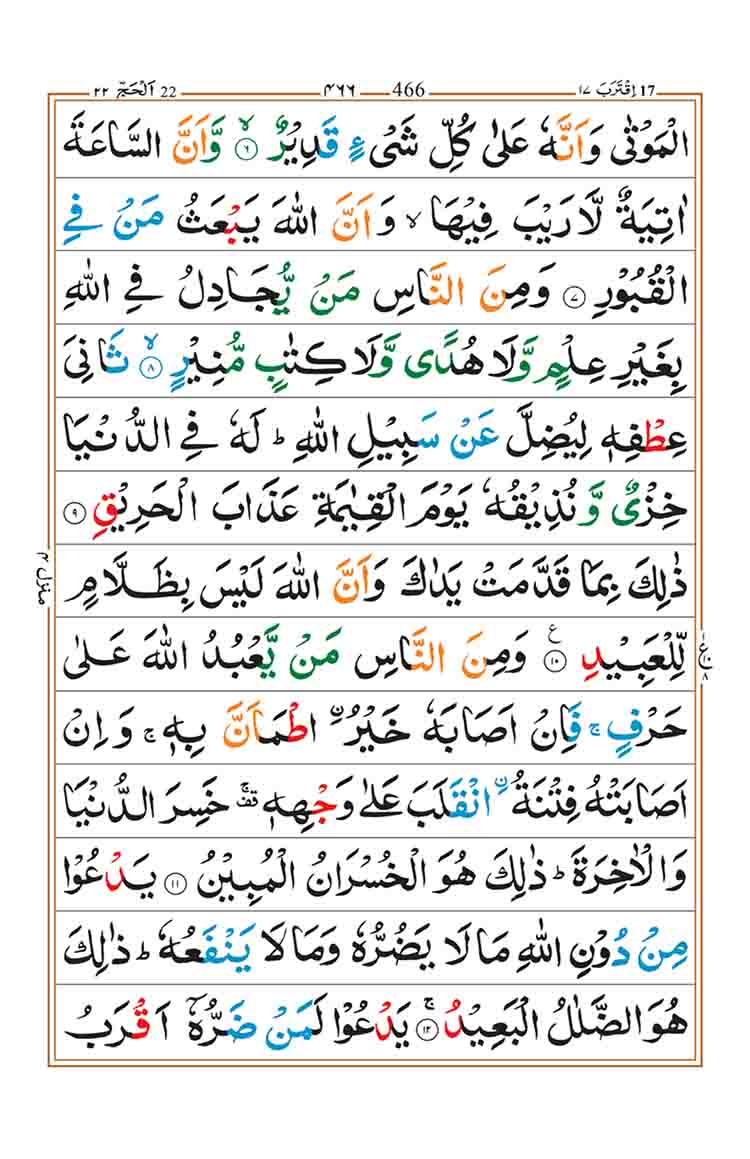 اِقْتَرَبَ ١٧ 17 ٤٦٦ 466 اَلْحَجّ ٢٢ 22
الْمَوْتٰى وَاَنَّهٗ عَلٰى كُلِّ شَىْءٍ قَدِيْرٌ ۙ‏﴿۶﴾ وَّاَنَّ السَّاعَةَ
اٰتِيَةٌ لَّا رَيْبَ فِيْهَا ۙ وَاَنَّ اللّٰهَ يَبْعَثُ مَنْ فِى
الْقُبُوْرِ ﴿۷﴾ وَمِنَ النَّاسِ مَنْ يُّجَادِلُ فِى اللّٰهِ
بِغَيْرِ عِلْمٍ وَّلَا هُدًى وَّلَا كِتٰبٍ مُّنِيْرٍ ۙ‏﴿۸﴾ ثَانِىَ
عِطْفِهٖ لِيُضِلَّ عَنْ سَبِيْلِ اللّٰهِ ؕ لَهٗ فِى الدُّنْيَا
خِزْىٌ وَّنُذِيْقُهٗ يَوْمَ الْقِيٰمَةِ عَذَابَ الْحَرِيْقِ ﴿۹﴾
ذٰلِكَ بِمَا قَدَّمَتْ يَدٰكَ وَاَنَّ اللّٰهَ لَيْسَ بِظَلَّامٍ
لِّلْعَبِيْدِ ﴿۱۰﴾ ع وَمِنَ النَّاسِ مَنْ يَّعْبُدُ اللّٰهَ عَلٰى
حَرْفٍ ۚ فَاِنْ اَصَابَهٗ خَيْرُ ۨ اطْمَاَنَّ بِهٖ ۚ وَاِنْ
اَصَابَتْهُ فِتْنَةُ ۨ انْقَلَبَ عَلٰى وَجْهِهٖ ۚ قف خَسِرَ الدُّنْيَا
وَالْاٰخِرَةَ ؕ ذٰلِكَ هُوَ الْخُسْرَانُ الْمُبِيْنُ ﴿۱۱﴾ يَدْعُوْا
مِنْ دُوْنِ اللّٰهِ مَا لَا يَضُرُّهٗ وَمَا لَا يَنْفَعُهٗ ؕ ذٰلِكَ
هُوَ الضَّلٰلُ الْبَعِيْدُ ۚ‏﴿۱۲﴾ يَدْعُوْا لَمَنْ ضَرُّهٗۤ اَقْرَبُ
منزل ۴